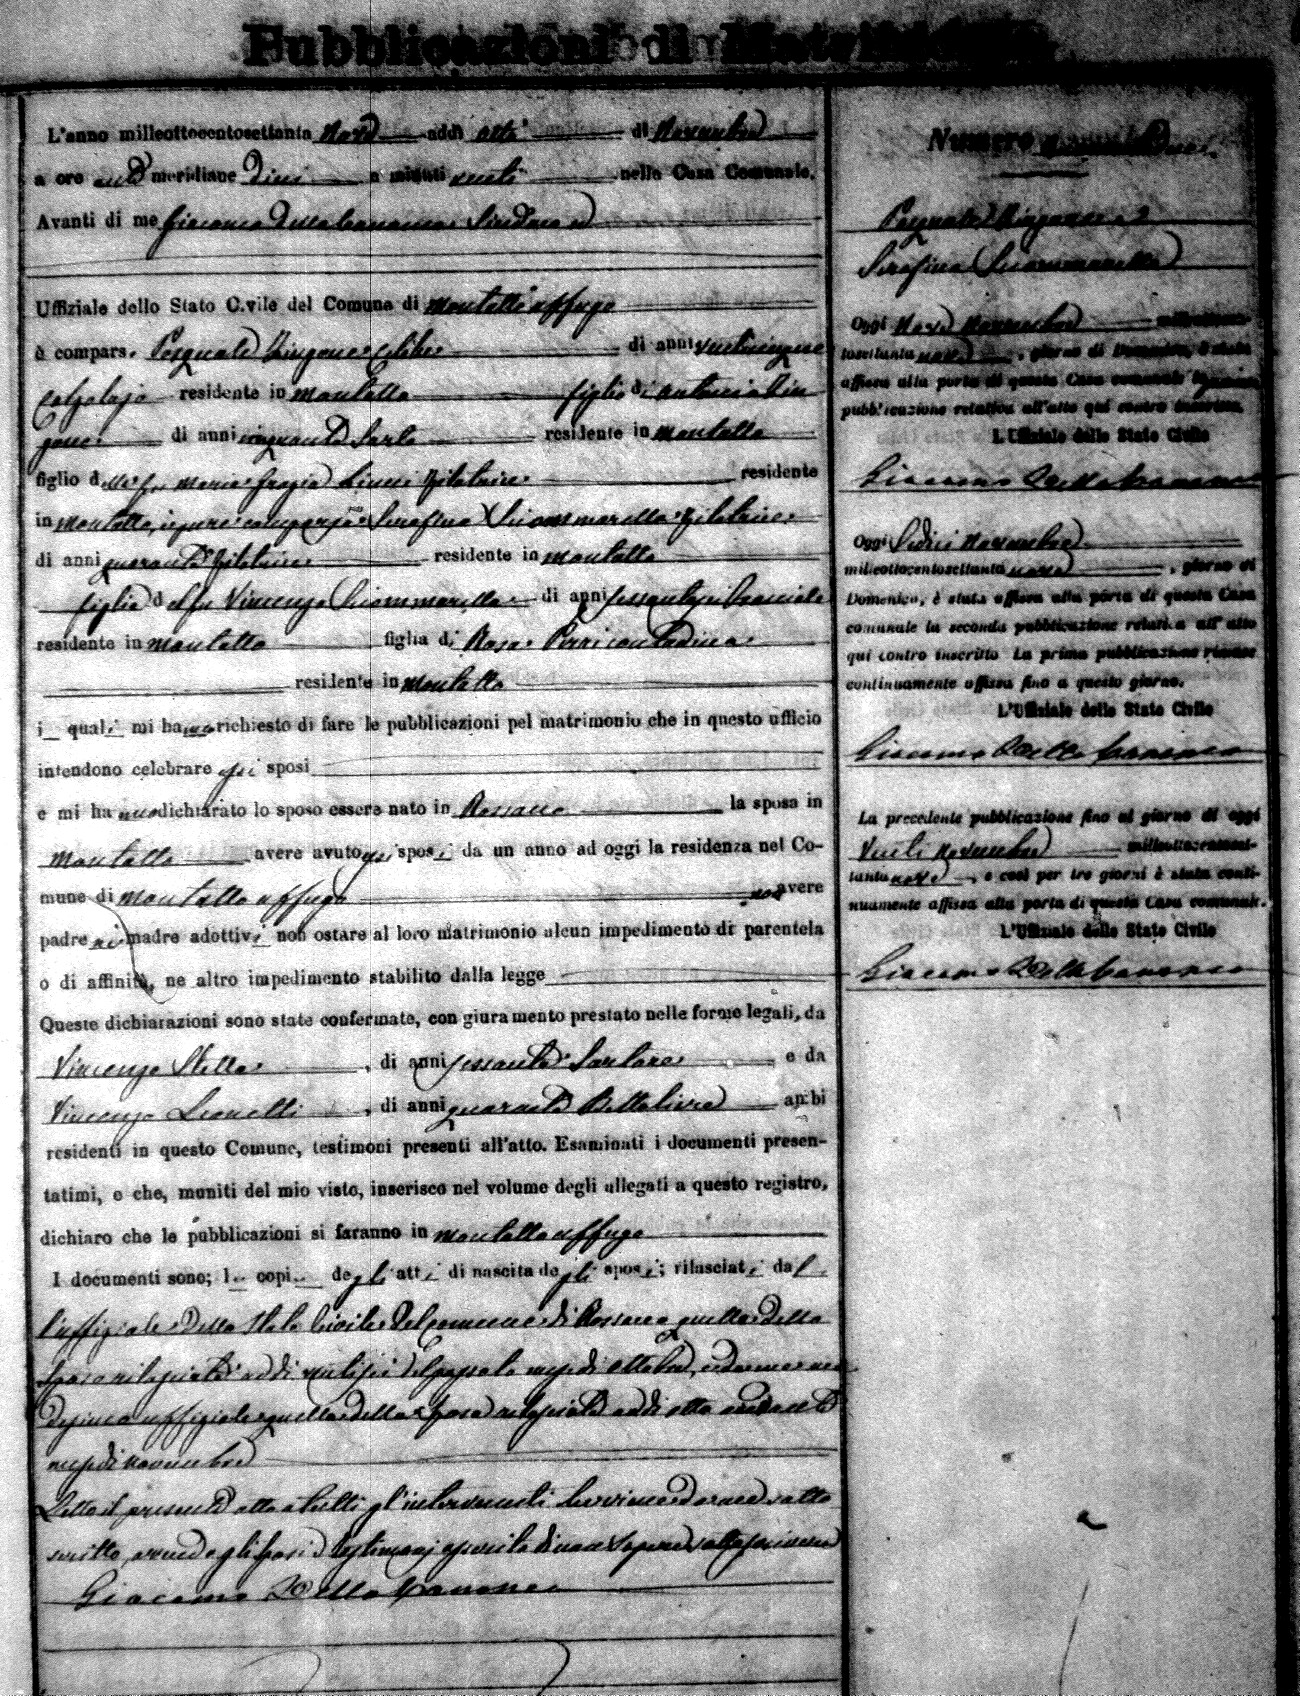 Pubblicazioni di Matrimonio
L'anno milleottocentosettanta Nove addì otto di Novembre
a ore anti meridiane Dieci e minuti venti nella Casa Comunale.
Avanti di me Giacomo Della Cananea Sindaco
Uffiziale dello Stato Civile del Comune di Montalto uffugo
è compars. Pasquale Zingone celibe di anni venticinque
Calzolajo residente in Montalto figlio di Antonio Zin
gone di anni cinquanta Sarto residente in Montalto
figlio della fu Maria Grazia filatrice residente
in Montalto, è pure comparsa Serafina Sciommarella filatrice
di anni quaranta filatrice residente in Montalto
figlia del fu Vincenzo Sciommarella di anni sessantasei bracciale
residente in Montalto figlia di Rosa Perri contadina
residente in Montalto
i quali mi hanno richiesto di fare le pubblicazioni pel matrimonio che in questo ufficio
intendono celebrare essi sposi
e mi hanno dichiarato lo sposo essere nato in Rossano la sposa in
Montalto avere avuto essi sposi da un anno ad oggi la residenza nel Co-
mune di Montalto uffugo non avere
padre nè madre adottivi non ostare al loro matrimonio alcun impedimento di parentela
o di affinità, ne altro impedimento stabilito dalla legge
Queste dichiarazioni sono state confermate, con giuramento prestato nelle forme legali, da
Vincenzo Stella, di anni sessanta Sartore e da
Vincenzo Leonetti, di anni quaranta Bettoliere ambi
residenti in questo Comune, testimoni presenti all'atto. Esaminati i documenti presen-
tatimi, e che, muniti del mio visto, inserisco nel volume degli allegati a questo registro,
dichiaro che le pubblicazioni si faranno in Montalto uffugo
I documenti sono; le copie degli atti di nascita degli sposi; rilasciati dal
l'uffiziale dello Stato Civile del Comune di Rossano quella dello
sposo rilasciata addì ventisei del passato mese di Ottobre, e da me me
desimo uffiziale quella della sposa rilasciata addì otto andante
mese di novembre
Letto il presente atto a tutti gl'intervenuti si è da me sotto
scritto, avendo gli sposi e testimonj asserito di non sapere sottoscrivere
Giacomo Della Cananea
Numero
Pasquale Zingone e
Serafina Sciommarella
Oggi Nove Novembre milleottocen-
tosettanta nove, giorno di Domenica, è stata
affissa alla porta di questa Casa comunale la prima
pubblicazione relativa all'atto qui contro inscritto.
L'Uffiziale dello Stato Civile
Giacomo Della Cananea
Oggi Sedici Novembre
milleottocentosettanta nove, giorno di
Domenica, è stata affissa alla porta di questa Casa
comunale la seconda pubblicazione relativa all'atto
qui contro inscritto. La prima pubblicazione rimase
continuamente affissa fino a questo giorno.
L'Uffiziale dello Stato Civile
Giacomo Della Cananea
La precedente pubblicazione fino al giorno di oggi
Venti Novembre milleottocentoset-
tanta nove, e così per tre giorni è stata conti-
nuamente affissa alla porta di questa Casa comunale.
L'Uffiziale dello Stato Civile
Giacomo Della Cananea